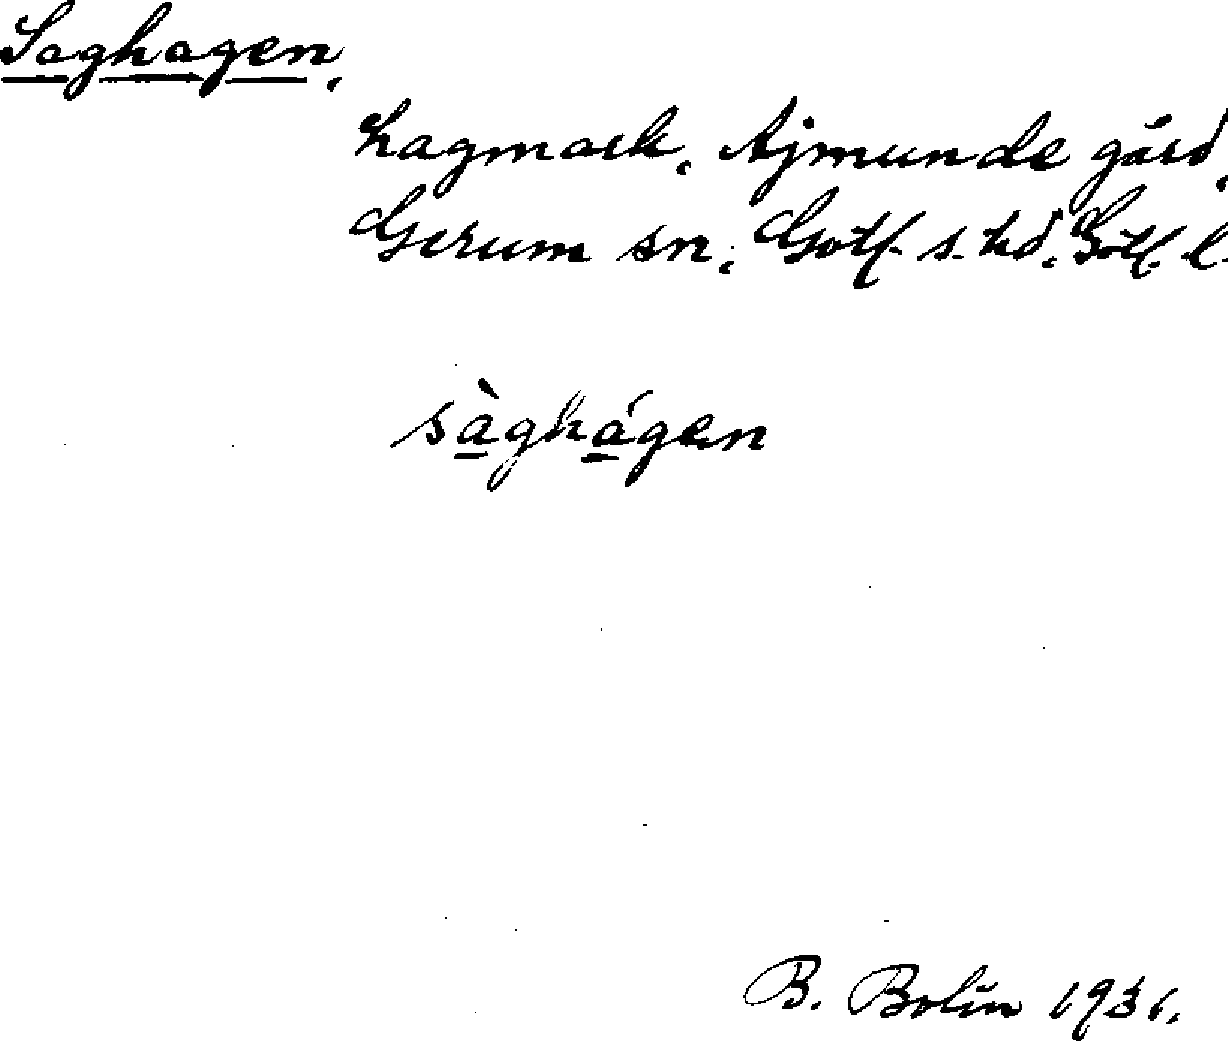 Saghagen.
hagmark. Ajmunde gård,
Gerum sn. Gotl. s. hd. Gotl. l.
sàghágen
B. Bolin 1931.